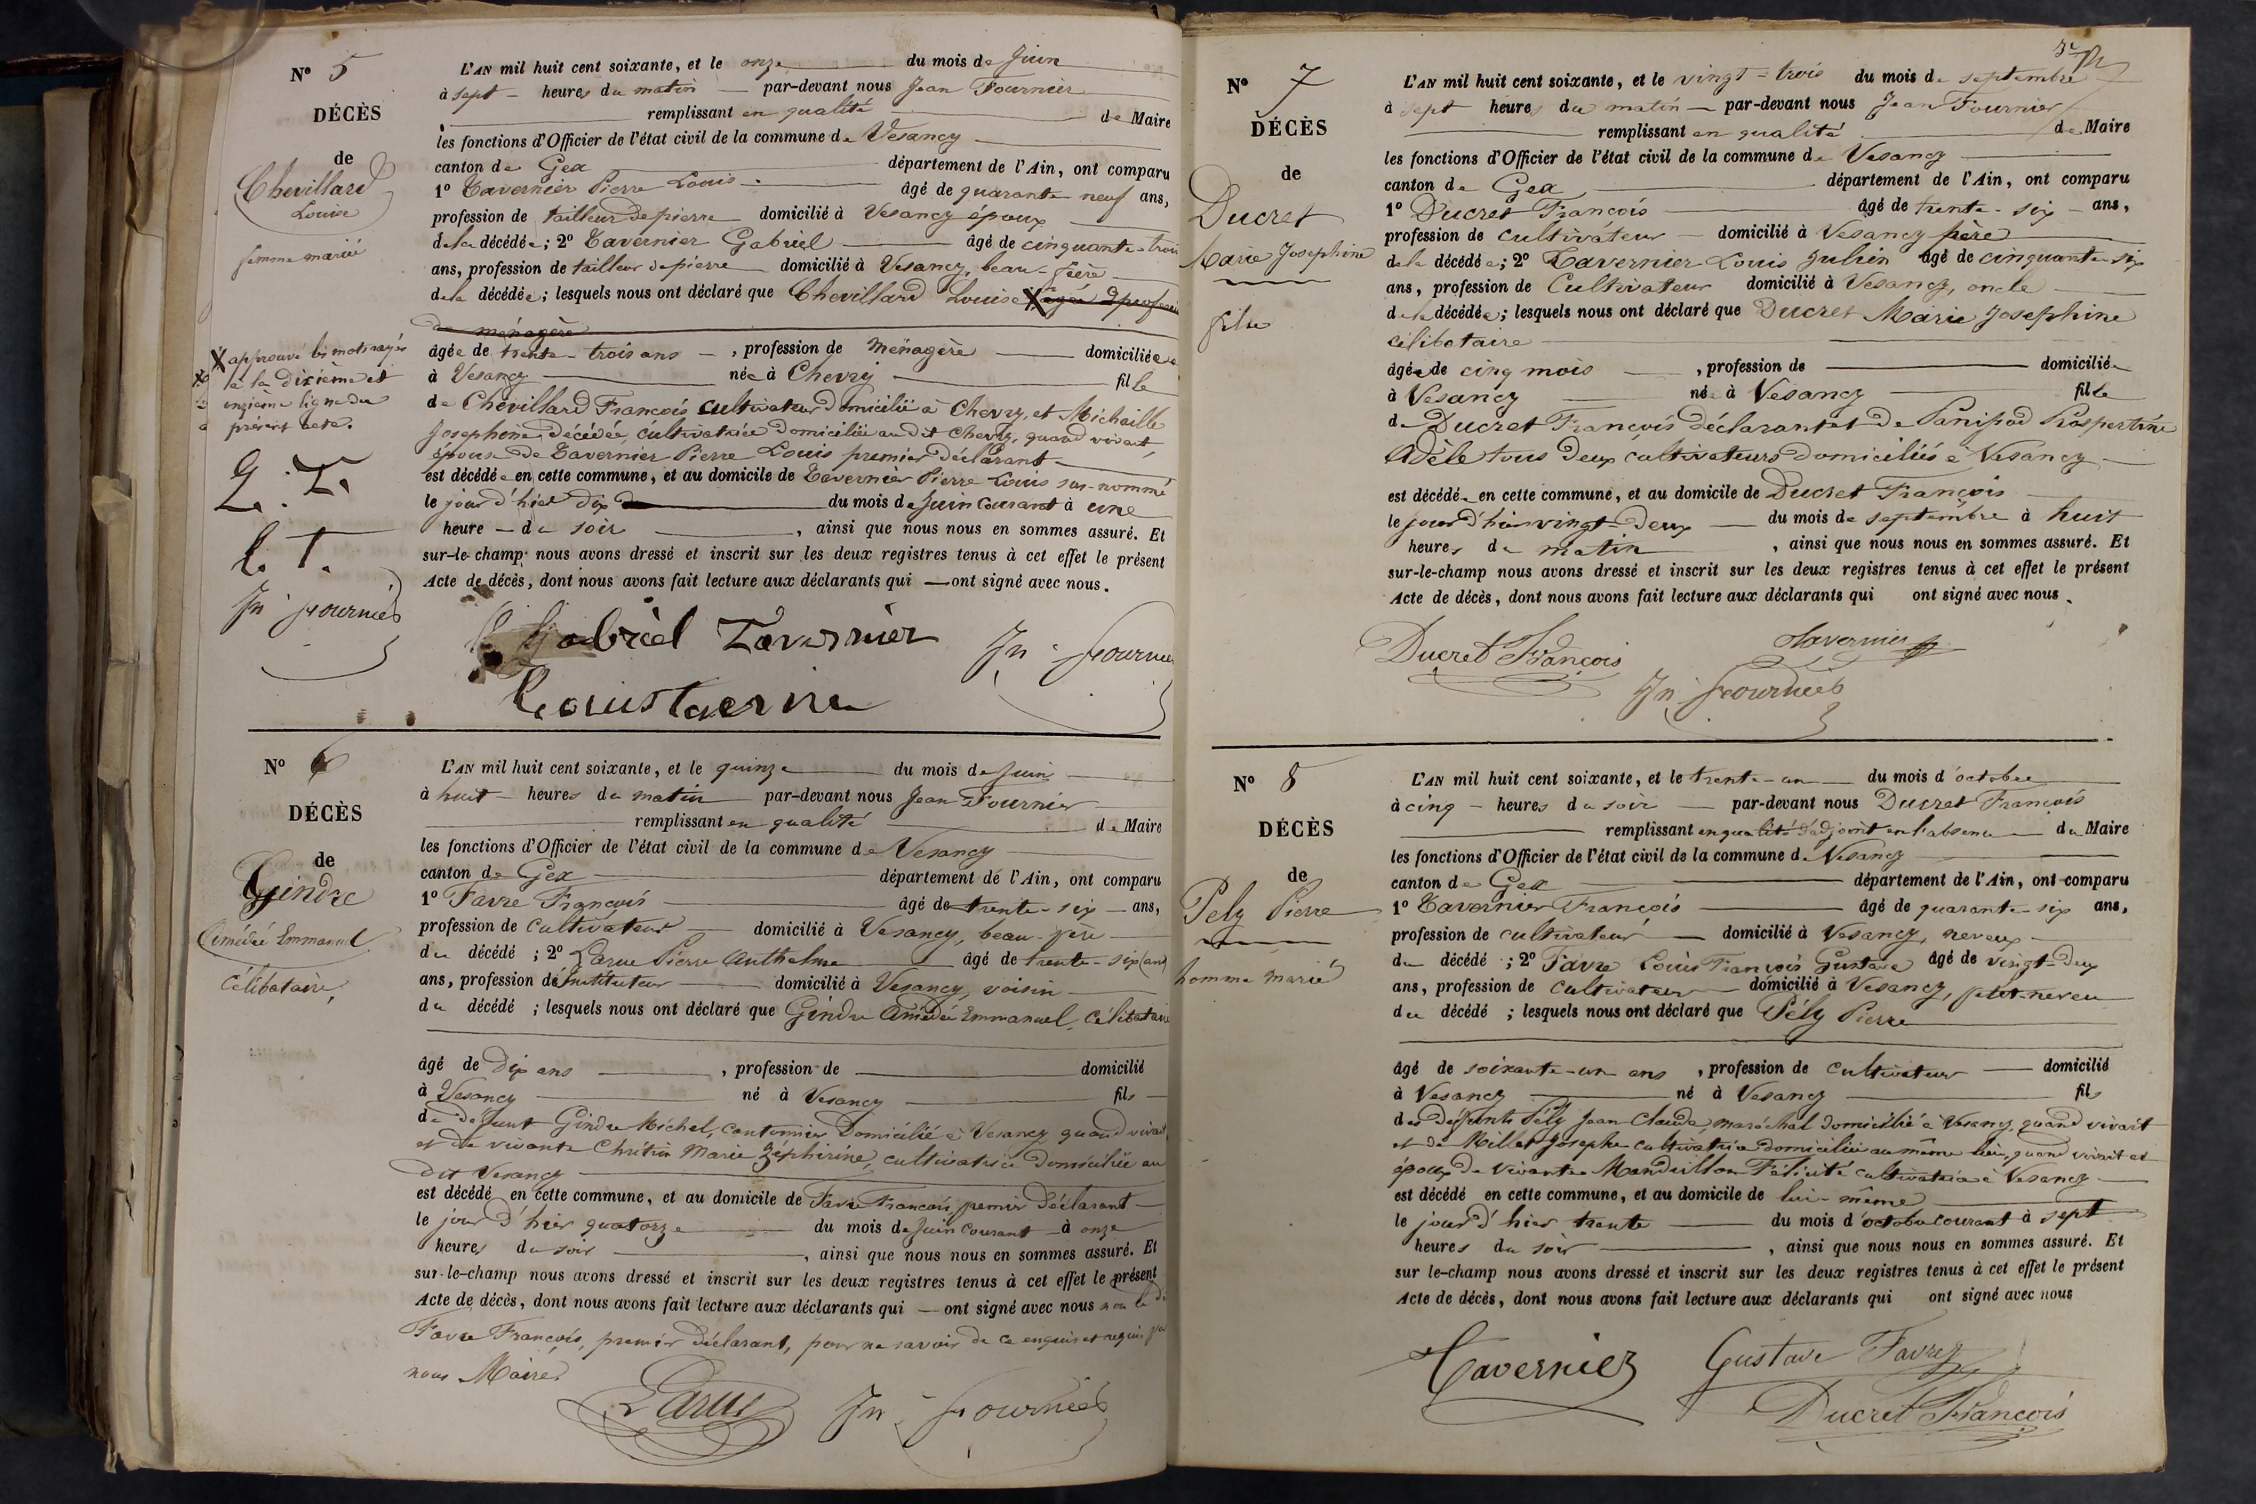 N° 5
DÉCÈS
de
Chevillard
Louise
femme mariée
X approuvé les mots rayés
à la dixième et
onzième ligne du
présent acte.
G. T.
L. T.
Jn Fournier
L'AN mil huit cent soixante, et le onze du mois de Juin
à sept heures du matin par-devant nous Jean Fournier
remplissant en qualité de Maire
les fonctions d'Officier de l'état civil de la commune de Vesancy
canton de Gex département de l'Ain, ont comparu
1° Tavernier Pierre Louis âgé de quarante neuf ans,
profession de tailleur de pierre domicilié à Vesancy époux
de la décédée; 2° Tavernier Gabriel âgé de cinquante-trois
ans, profession de tailleur de pierre domicilié à Vesancy, beau-frère
de la décédée; lesquels nous ont déclaré que Chevillard Louise X âgée profession
de ménagère
âgée de trente-trois ans, profession de Ménagère domiciliée
à Vesancy née à Chevry fille
de Chevillard François cultivateur domicilié à Chevry, et Michaille
Josephine décédée, cultivatrice domiciliée au dit Chevry, quand vivait,
épouse de Tavernier Pierre Louis premier déclarant
est décédée en cette commune, et au domicile de Tavernier Pierre Louis sus-nommé
le jour d'hier dix du mois de Juin courant à une
heure du soir, ainsi que nous nous en sommes assuré. Et
sur-le-champ nous avons dressé et inscrit sur les deux registres tenus à cet effet le présent
Acte de décès, dont nous avons fait lecture aux déclarants qui ont signé avec nous.
Gabriel Tavernier
Jn Fournier
N° 6
DÉCÈS
de
Gindre
Amédée Emmanuel
Célibataire,
L'AN mil huit cent soixante, et le quinze du mois de Juin
à huit heures du matin par-devant nous Jean Fournier
remplissant en qualité de Maire
les fonctions d'Officier de l'état civil de la commune de Vesancy
canton de Gex département de l'Ain, ont comparu
1° Favre François âgé de trente-six ans,
profession de cultivateur domicilié à Vesancy, beau-père
du décédé; 2° Larue Pierre Anthelme âgé de trente-six ans
ans, profession d'Instituteur domicilié à Vesancy, voisin
du décédé; lesquels nous ont déclaré que Gindre Amédée Emmanuel, célibataire
âgé de dix ans, profession de domicilié
à Vesancy né à Vesancy fils
de défunt Gindre Michel, cantonnier domicilié à Vesancy quand vivait
et de vivante Chrétin Marie Zéphirine, cultivatrice domiciliée au
dit Vesancy
est décédé en cette commune, et au domicile de Favre François, premier déclarant
le jour d'hier quatorze du mois de Juin courant à onze
heures du soir, ainsi que nous nous en sommes assuré. Et
sur-le-champ nous avons dressé et inscrit sur les deux registres tenus à cet effet le présent
Acte de décès, dont nous avons fait lecture aux déclarants qui ont signé avec nous non le dit
Favre François, premier déclarant, pour ne savoir de ce enquis et requis par
nous Maire.
Larue
Jn Fournier
N° 7
DÉCÈS
de
Ducret
Marie Josephine
fille
L'AN mil huit cent soixante, et le vingt-trois du mois de septembre
à sept heures du matin par-devant nous Jean Fournier
remplissant en qualité de Maire
les fonctions d'Officier de l'état civil de la commune de Vesancy
canton de Gex département de l'Ain, ont comparu
1° Ducret François âgé de trente-six ans,
profession de cultivateur domicilié à Vesancy père
de la décédée; 2° Tavernier Louis Julien âgé de cinquante-six
ans, profession de Cultivateur domicilié à Vesancy, oncle
de la décédée; lesquels nous ont déclaré que Ducret Marie Josephine
célibataire
âgée de cinq mois, profession de domiciliée
à Vesancy née à Vesancy fille
de Ducret François déclarant et de Panissod Prospertine
Adèle tous deux cultivateurs domiciliés à Vesancy
est décédée en cette commune, et au domicile de Ducret François
le jour d'hier vingt-deux du mois de septembre à huit
heures du matin, ainsi que nous nous en sommes assuré. Et
sur-le-champ nous avons dressé et inscrit sur les deux registres tenus à cet effet le présent
Acte de décès, dont nous avons fait lecture aux déclarants qui ont signé avec nous.
Ducret François
Tavernier
Jn Fournier
N° 8
DÉCÈS
de
Pely Pierre
homme marié
L'AN mil huit cent soixante, et le trente-un du mois d'octobre
à cinq heures du soir par-devant nous Ducret François
remplissant en qualité d'adjoint en l'absence du Maire
les fonctions d'Officier de l'état civil de la commune de Vesancy
canton de Gex département de l'Ain, ont comparu
1° Tavernier François âgé de quarante-six ans,
profession de cultivateur domicilié à Vesancy, neveux
du décédé; 2° Favre Louis François Gustave âgé de vingt-deux
ans, profession de cultivateur domicilié à Vesancy, petit-neveu
du décédé; lesquels nous ont déclaré que Pély Pierre
âgé de soixante-un ans, profession de cultivateur domicilié
à Vesancy né à Vesancy fils
des défunts Pély Jean Claude, maréchal domicilié à Vesancy, quand vivait
et de Millet Josephe cultivatrice domiciliée au même lieu, quand vivait et
époux de vivante Mandrillon Félicité cultivatrice à Vesancy
est décédé en cette commune, et au domicile de lui-même
le jour d'hier trente du mois d'octobre courant à sept
heures du soir, ainsi que nous nous en sommes assuré. Et
sur le-champ nous avons dressé et inscrit sur les deux registres tenus à cet effet le présent
Acte de décès, dont nous avons fait lecture aux déclarants qui ont signé avec nous
Tavernier
Gustave Favre
Ducret François